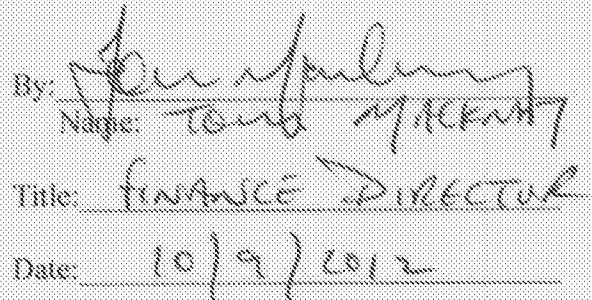 By:
Name: TONY MACKAY
Title: FINANCE DIRECTOR
Date: 10/9/2012